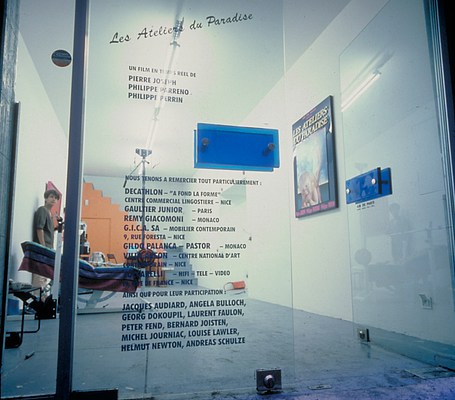 Les Ateliers du Paradise
UN FILM EN TEMPS REEL DE
PIERRE JOSEPH
PHILIPPE PARRENO
PHILIPPE PERRIN
NOUS TENONS A REMERCIER TOUT PARTICULIEREMENT :
DECATHLON – "A FOND LA FORME"
CENTRE COMMERCIAL LINGOSTIERE – NICE
GAULTIER JUNIOR – PARIS
REMY GIACOMONI – MONACO
G.I.C.A. SA – MOBILIER CONTEMPORAIN
9, RUE FORESTA – NICE
GILDO PALANCA – PASTOR – MONACO
– CENTRE NATIONAL D'ART
– NICE
– HIFI – TELE – VIDEO
DE FRANCE – NICE
AINSI QUE POUR LEUR PARTICIPATION :
JACQUES AUDIARD, ANGELA BULLOCH,
GEORG DOKOUPIL, LAURENT FAULON,
PETER FEND, BERNARD JOISTEN,
MICHEL JOURNIAC, LOUISE LAWLER,
HELMUT NEWTON, ANDREAS SCHULZE
LES ATELIERS
DU PARADISE